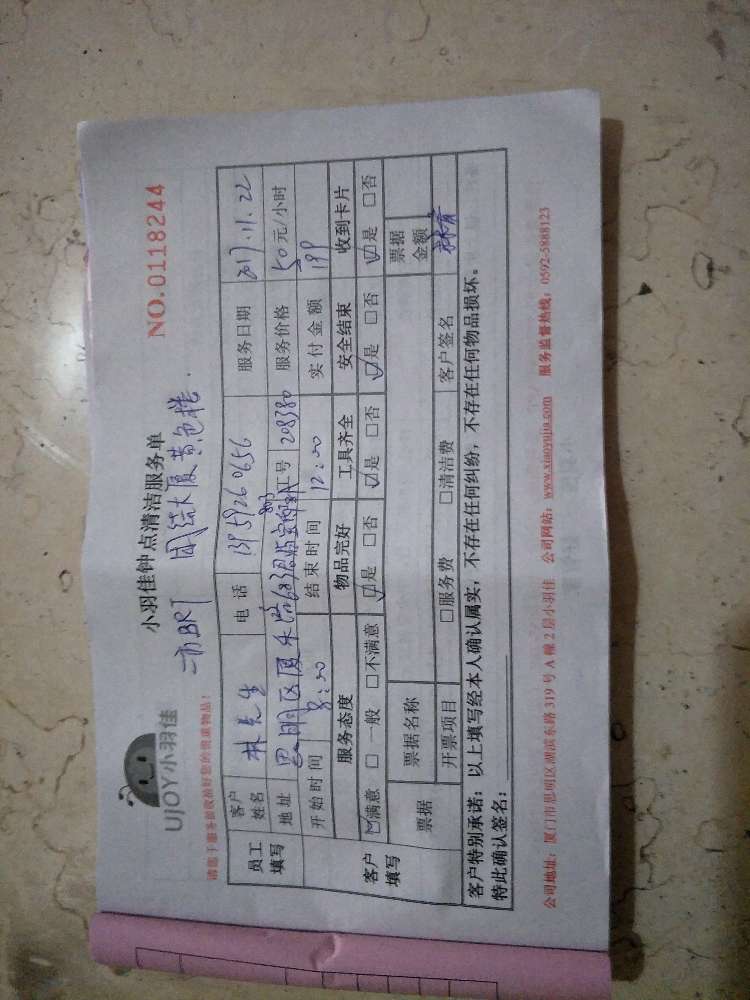 UJOY小羽佳
小羽佳钟点清洁服务单
NO.0118244
请您于服务前收拾好您的贵重物品！
BRT 大厦黄色楼
员工填写 客户姓名 林先生 电话 13959260656 服务日期 2017.11.22
地址 思明区厦禾路 803 工号 208380 服务价格 50元/小时
开始时间 8:00 结束时间 12:00 实付金额 199
客户填写 服务态度 物品完好 工具齐全 安全结束 收到卡片
☑满意 □一般 □不满意 ☑是 □否 ☑是 □否 ☑是 □否 ☑是 □否
票据 票据名称 票据金额
开票项目 □服务费 □清洁费 客户签名
客户特别承诺：以上填写经本人确认属实，不存在任何纠纷，不存在任何物品损坏。
特此确认签名：
公司地址：厦门市思明区湖滨东路319号A幢2层小羽佳 公司网站：www.xiaoyujia.com 服务监督热线：0592-5888123